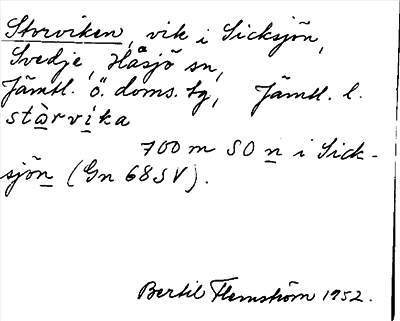 Storviken, vik i Sicksjön,
Svedje, Håsjö sn,
Jämtl. ö. doms. tg, Jämtl. l.
stàrvika
700 m SO n i Sick-
sjön (Gn 68 SV).
Bertil Flemström 1952.